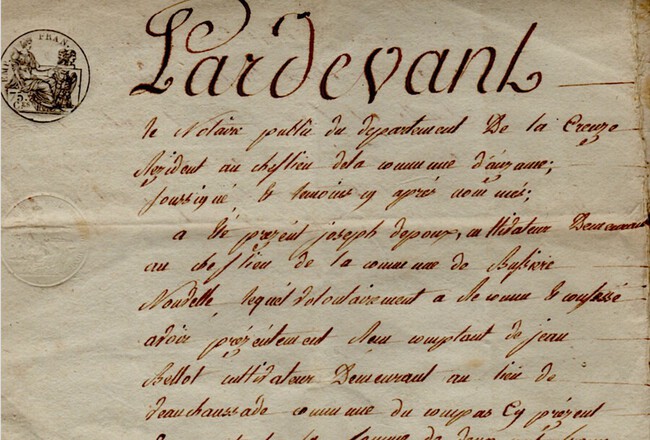 Pardevant
le Notaire public du departement De la Creuze
Rezident au cheflieu dela commune d'auzame;
soussigné, & temoins cy après nommés;
a été prezent joseph depoux, cultivateur Demeurant
au cheflieu de la commune de Bussiere
Noudelle lequel volontairement a Reconnu & confessé
avoir prézentement Reçu comptant de jean
Bellot cultivateur Demeurant au lieu de
commune du compas Cy prézent
la somme de